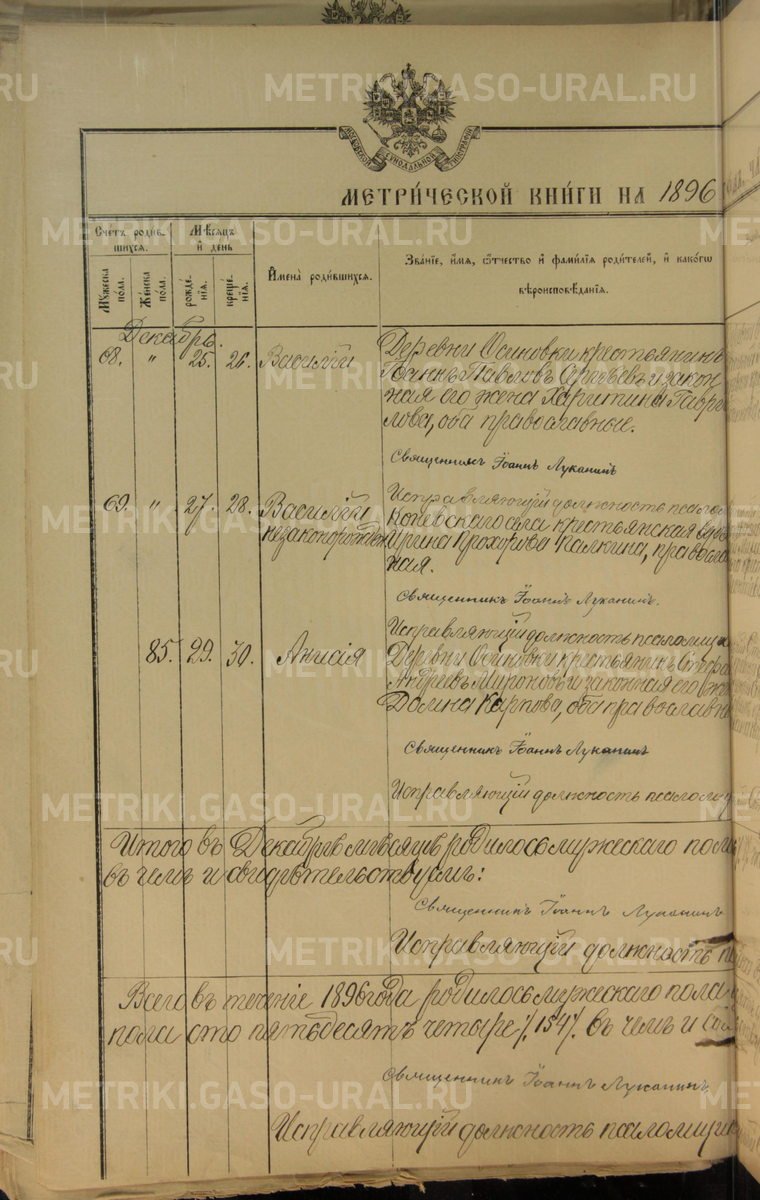 METRIKI.GASO-URAL.RU
МОСКОВСКОЙ СѴНОДАЛЬНОЙ ТИПОГРАФІИ
МЕТРИ́ЧЕСКОЙ КНИ́ГИ НА 1896
Сче́тъ роди́в-
шихсѧ.
Мѣ́сѧцъ
и҆ де́нь
Мꙋ́жеска по́ла.
Же́нска по́ла.
рожде́-нїѧ.
креще́-нїѧ.
И҆мена̀ роди́вшихсѧ.
Зва́нїе, и҆́мѧ, ѻ҆́тчество и҆ фами́лїѧ роди́телей, и҆ како́гѡ
вѣроисповѣ́данїѧ.
Декабрь.
68. " 25. 26. Василій
Деревни Осиновки крестьянинъ
Іоаннъ Павловъ и закон-
ная его жена Харитина Гаври-
лова, оба православные.
Священникъ Іоаннъ Луканинъ
Исправляющій должность псалом
69. " 27. 28. Василій
незаконорожден
Коневскаго села крестьянская
Ирина Прохорова Калкина, православ
ная.
Священникъ Іоаннъ Луканинъ.
Исправляющій должность псаломщи
85. 29. 30. Анисія
Деревни Осиновки крестьянинъ
Андреевъ Мироновъ и законная его
Карпова, оба православн
Священникъ Іоаннъ Луканинъ
Исправляющій должность псалом
Итого въ Декабрѣ мѣсяцѣ родилось мужескаго пола
въ чемъ и свидѣтельствуемъ:
Священникъ Іоаннъ Луканинъ
Исправляющій должность
Всего въ теченіе 1896 года родилось мужескаго пола
пола сто пятьдесятъ четыре /.154/. въ чемъ и
Священникъ Іоаннъ Луканинъ
Исправляющій должность псаломщик